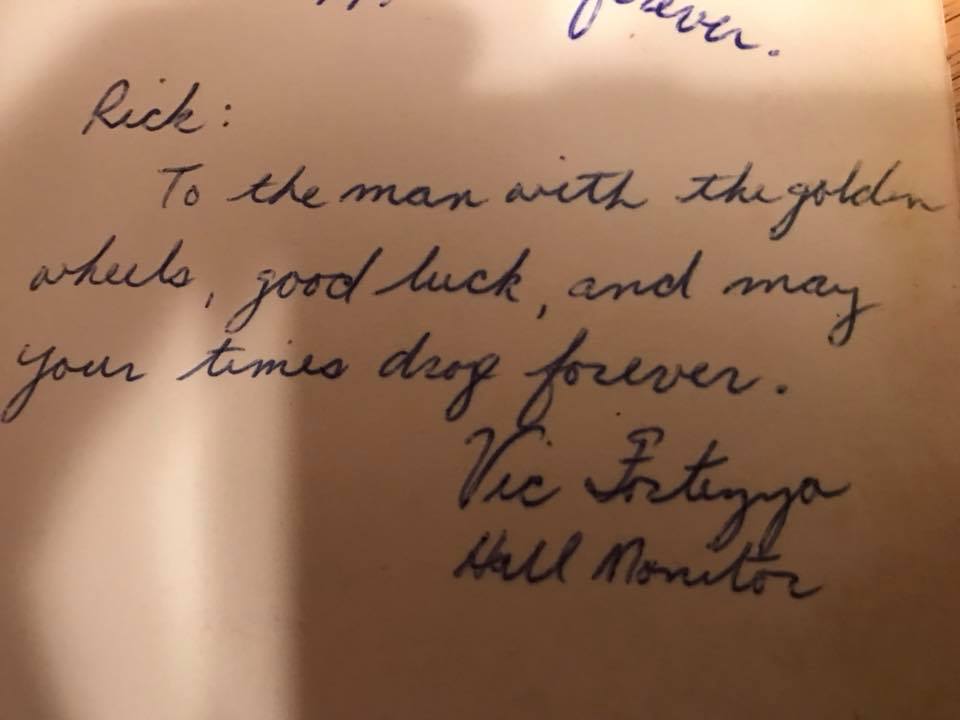 forever.
Rick:
To the man with the golden
wheels, good luck, and may
your times drog forever.
Vic
Hall Monitor